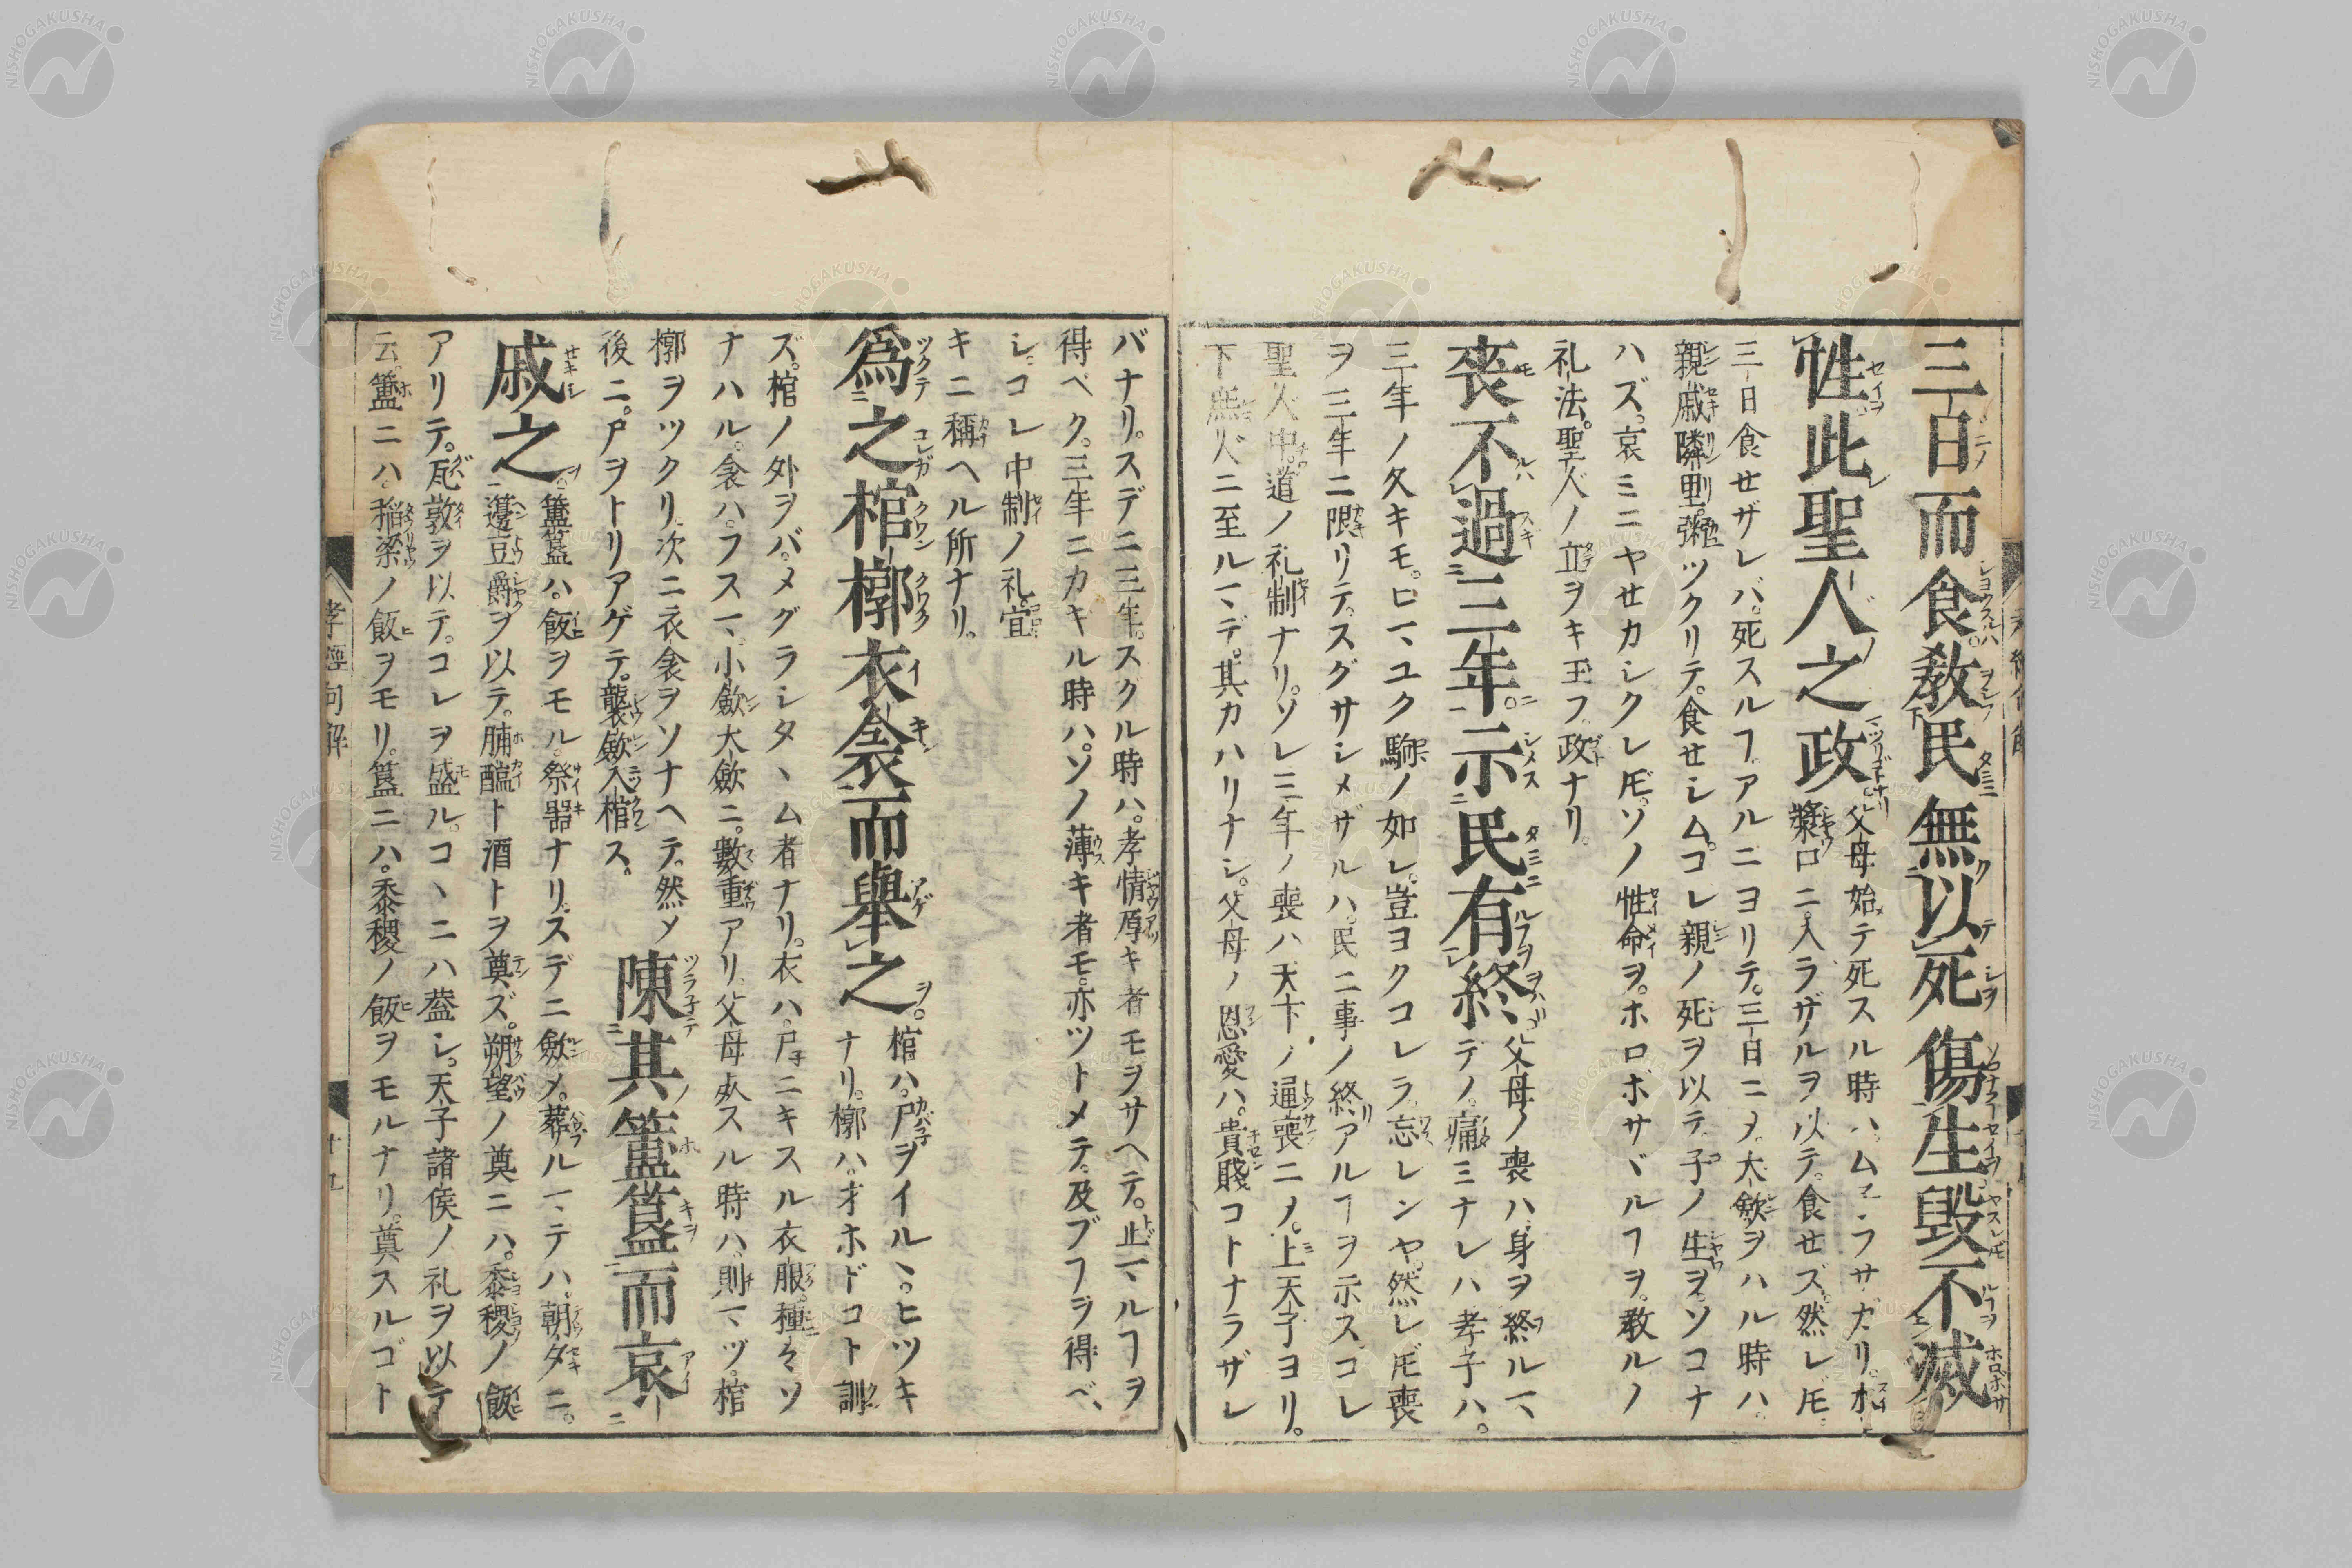 三日而食教民無以死傷生毀不滅
性此聖人之政父母始テ死スル時ハ
漿口ニ入ラザルヲ以テ。食セズ。然レ𪜈
三日食セザレバ。死スルヿアルニヨリテ。三日ニメ。大歛ヲハル時ハ。
親戚隣里。粥ツクリテ。食セシム。コレ親ノ死ヲ以テ子ノ生ヲ。ソコナ
ハズ。哀ミニヤセカシクレ𪜈。ソノ性命ヲ。ホロボサヾルヿヲ。教ルノ
礼法。聖人ノ立ヲキ玉フ。政ナリ。
喪不過三年。示民有終父母ノ喪ハ身ヲ終ルマ
デノ。痛ミナレハ孝子ハ。
三年ノ久キモ。ヒマユク駒ノ如シ。豈ヨクコレラ。忘レンヤ。然レ𪜈喪
ヲ三年ニ限リテ。スグサシメザルハ。民ニ事ノ終アルヿヲ示ス。コレ
聖人中道ノ礼制ナリ。ソレ三年ノ喪ハ天下ノ通喪ニメ。上天子ヨリ。
下庶人ニ至ルマデ。其カハリナシ。父母ノ恩愛ハ。貴賤コトナラザレ
バナリ。スデニ三年。スクル時ハ。孝情厚キ者モヲサヘテ。止マルヿヲ
得ベク。三年ニカキル時ハ。ソノ薄キ者モ。亦ツトメテ。及ブヿヲ得ベ
シ。コレ中制ノ礼。宜
キニ稱ヘル所ナリ。
爲之棺槨衣衾而舉之。棺ハ。尸ヲイルヽ。ヒツキ
ナリ。槨ハ。オホドコト訓
ズ。棺ノ外ヲバ。メグラシタヽム者ナリ。衣ハ。尸ニキスル衣服。種々ソ
ナハル。衾ハ。フスマ。小歛大歛ニ。數重アリ。父母死スル時ハ。則マヅ。棺
槨ヲツクリ。次ニ衣衾ヲソナヘテ。然メ
後ニ。尸ヲトリアゲテ。襲歛入棺ス。
陳其簠簋而哀
戚之。簠簋ハ。飯ヲモル。祭器ナリ。スデニ歛メ。葬ルマテハ。朝夕ニ。
籩豆爵ヲ以テ。脯醢ト酒トヲ奠ズ。朔望ノ奠ニハ。黍稷ノ飯
アリテ。瓦敦ヲ以テ。コレヲ盛ル。コヽニハ蓋シ。天子諸侯ノ礼ヲ以テ
云。簠ニハ。稲梁ノ飯ヲモリ。簋ニハ。黍稷ノ飯ヲモルナリ。奠スルゴト
孝經句解
廿九